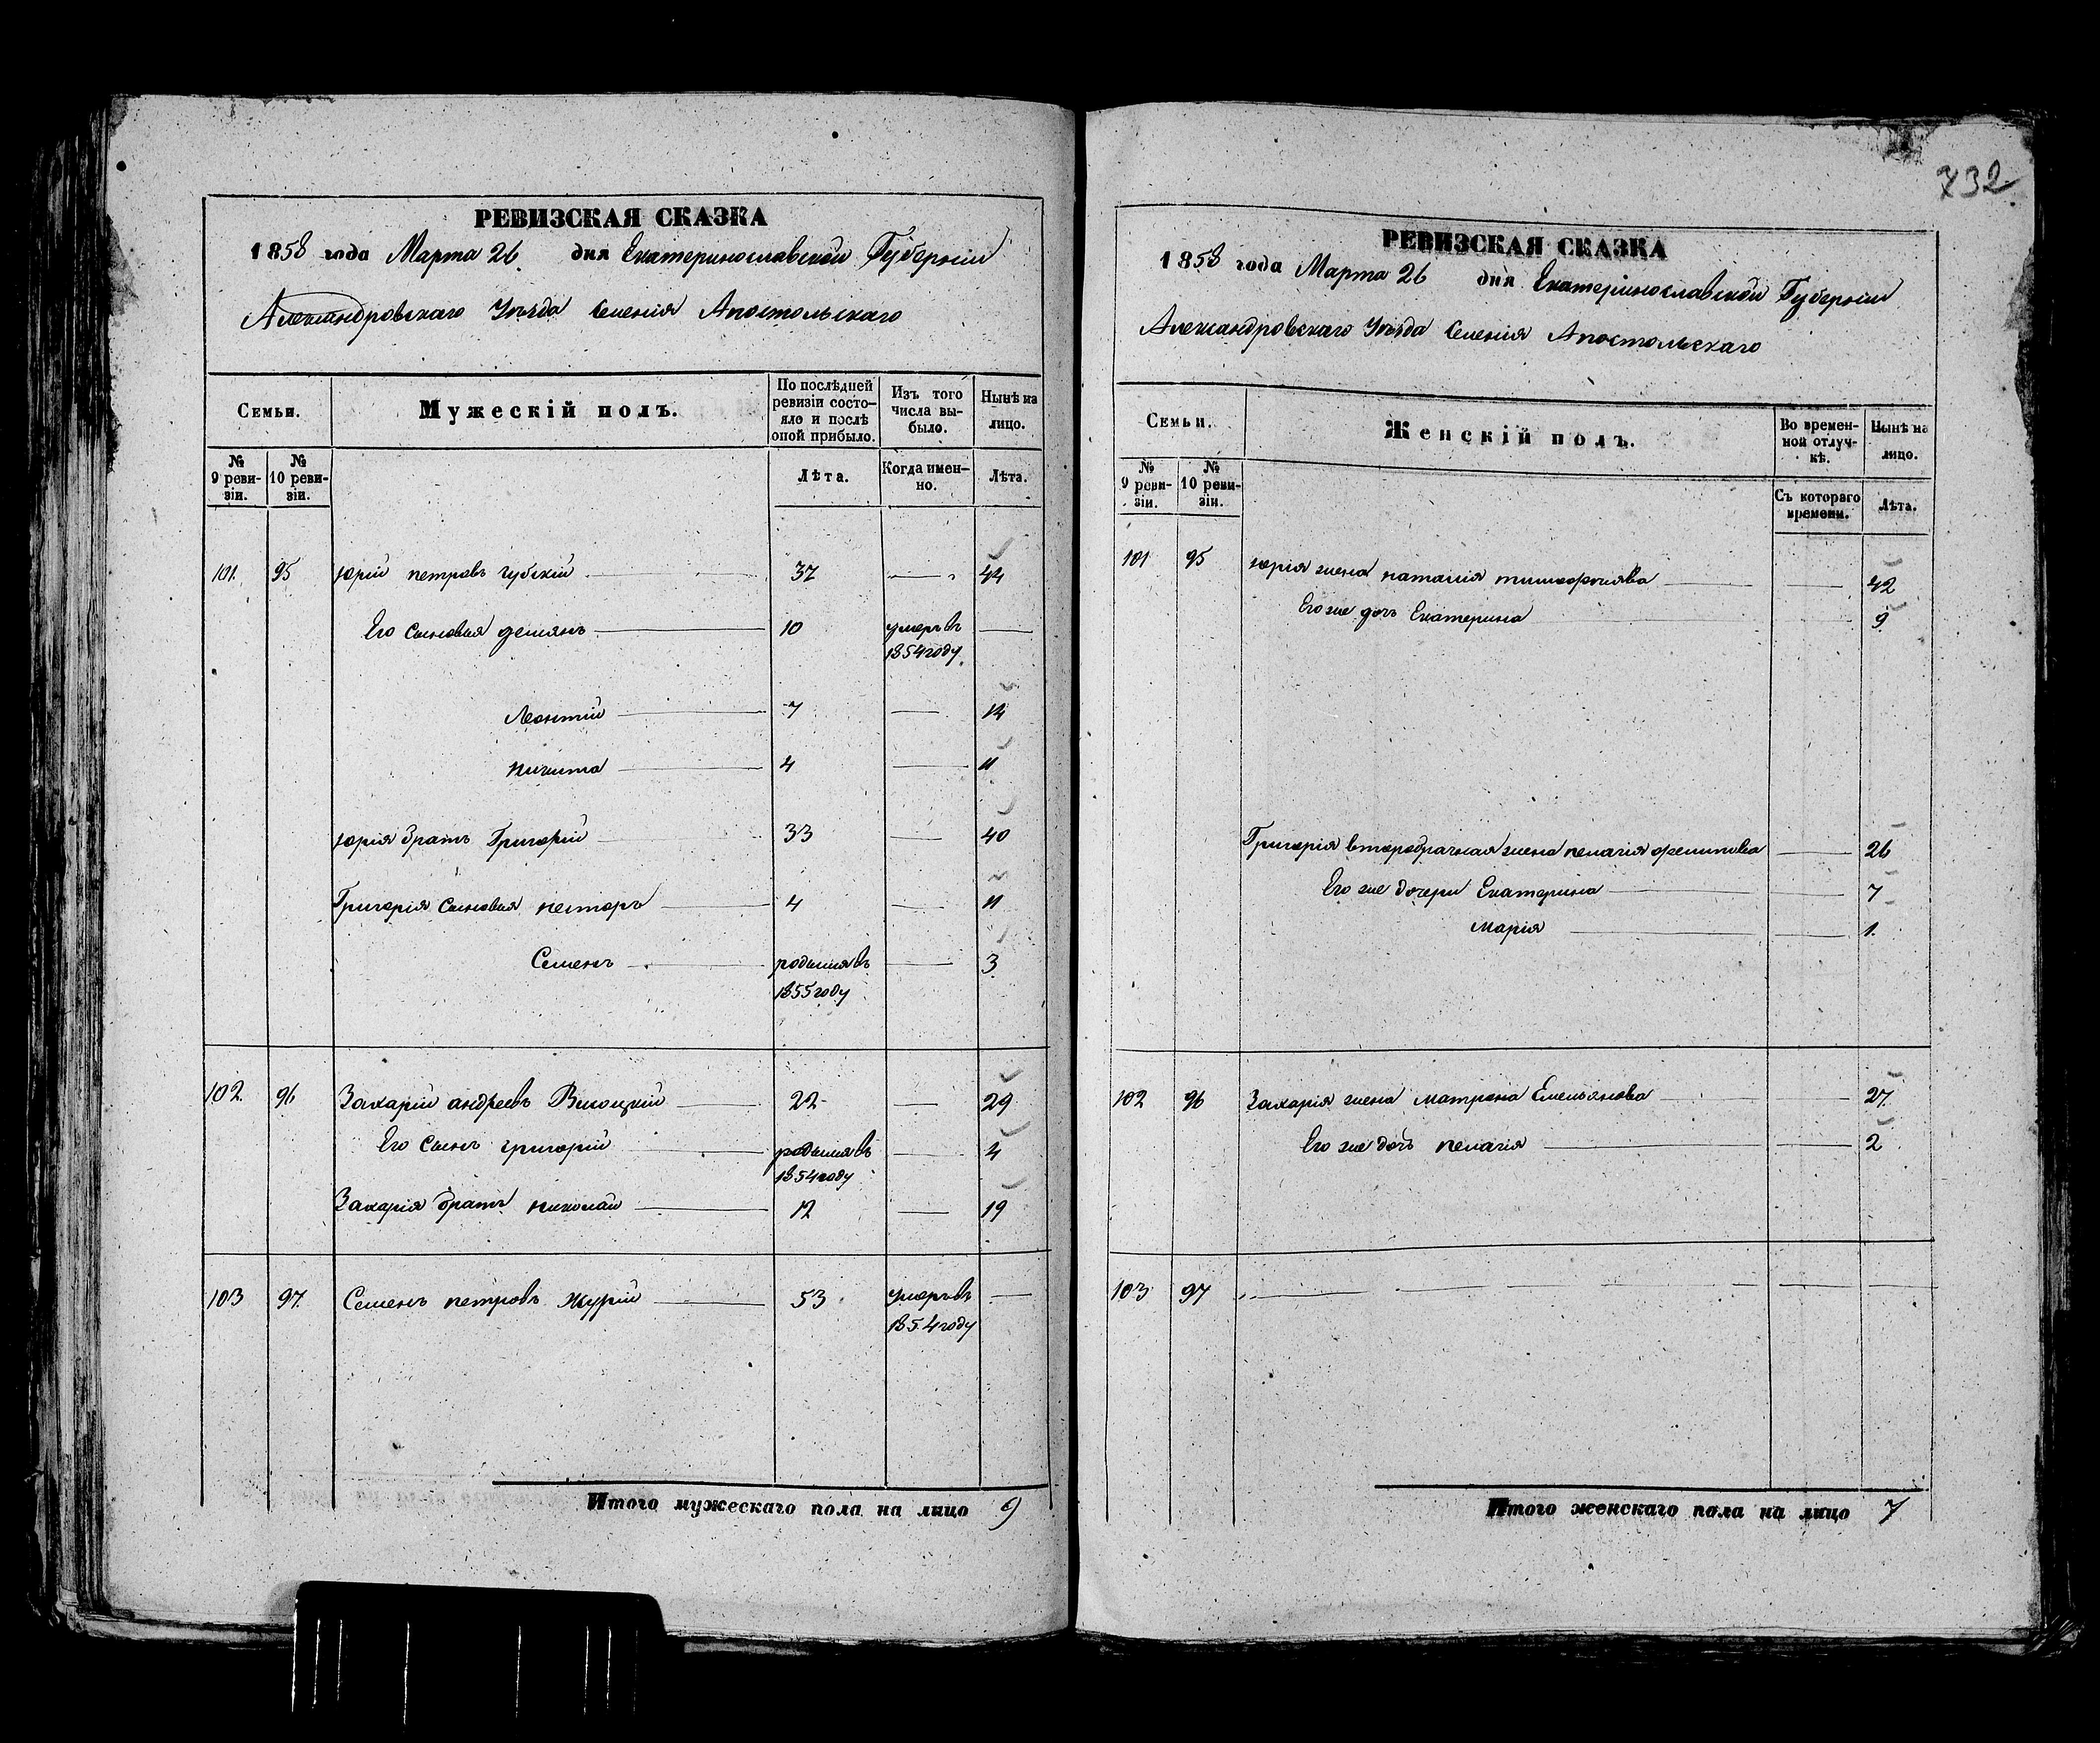 732
РЕВИЗСКАЯ СКАЗКА
1858 года Марта 26 дня Екатеринославской Губерніи
Александровскаго Уѣзда Селенія Апостольскаго
Семьи.
Мужескій полъ.
По послѣдней ревизіи состояло и послѣ оной прибыло.
Изъ того числа выбыло.
Нынѣ на лицо.
№ 9 ревизіи.
№ 10 ревизіи.
Лѣта.
Когда именно.
Лѣта.
101. 95 Юрій петровъ губскій 37 44
Его сыновья демянъ 10 умеръ въ
1854 году.
Леонтій 7 14
никита 4 11
Юрія братъ Григорій 33 40
Григорія сыновья несторъ 4 11
Семенъ родился въ 3
1855 году
102. 96 Захарій андреевъ Висоцкій 22 29
Его сынъ григорій родился въ 4
1854 году
Захарія братъ николай 12 19
103 97. Семенъ петровъ Журій 53 умеръ въ
1854 году
Итого мужескаго пола на лицо 9
РЕВИЗСКАЯ СКАЗКА
1858 года Марта 26 дня Екатеринославской Губерніи
Александровскаго Уѣзда Селенія Апостольскаго
Семьи.
Женскій полъ.
Во временной отлучкѣ.
Нынѣ на лицо.
№ 9 ревизіи.
№ 10 ревизіи.
Съ котораго времени.
Лѣта.
101 95 Юрія жена наталія тимофеива 42
Его же дочь Екатерина 9
Григорія второбрачная жена пелагія филипова 26
Его же дочери Екатерина 7
марія 1.
102 96 Захарія жена матрона Емельянова 27.
Его же дочь пелагія 2
103 97
Итого женскаго пола на лицо 7